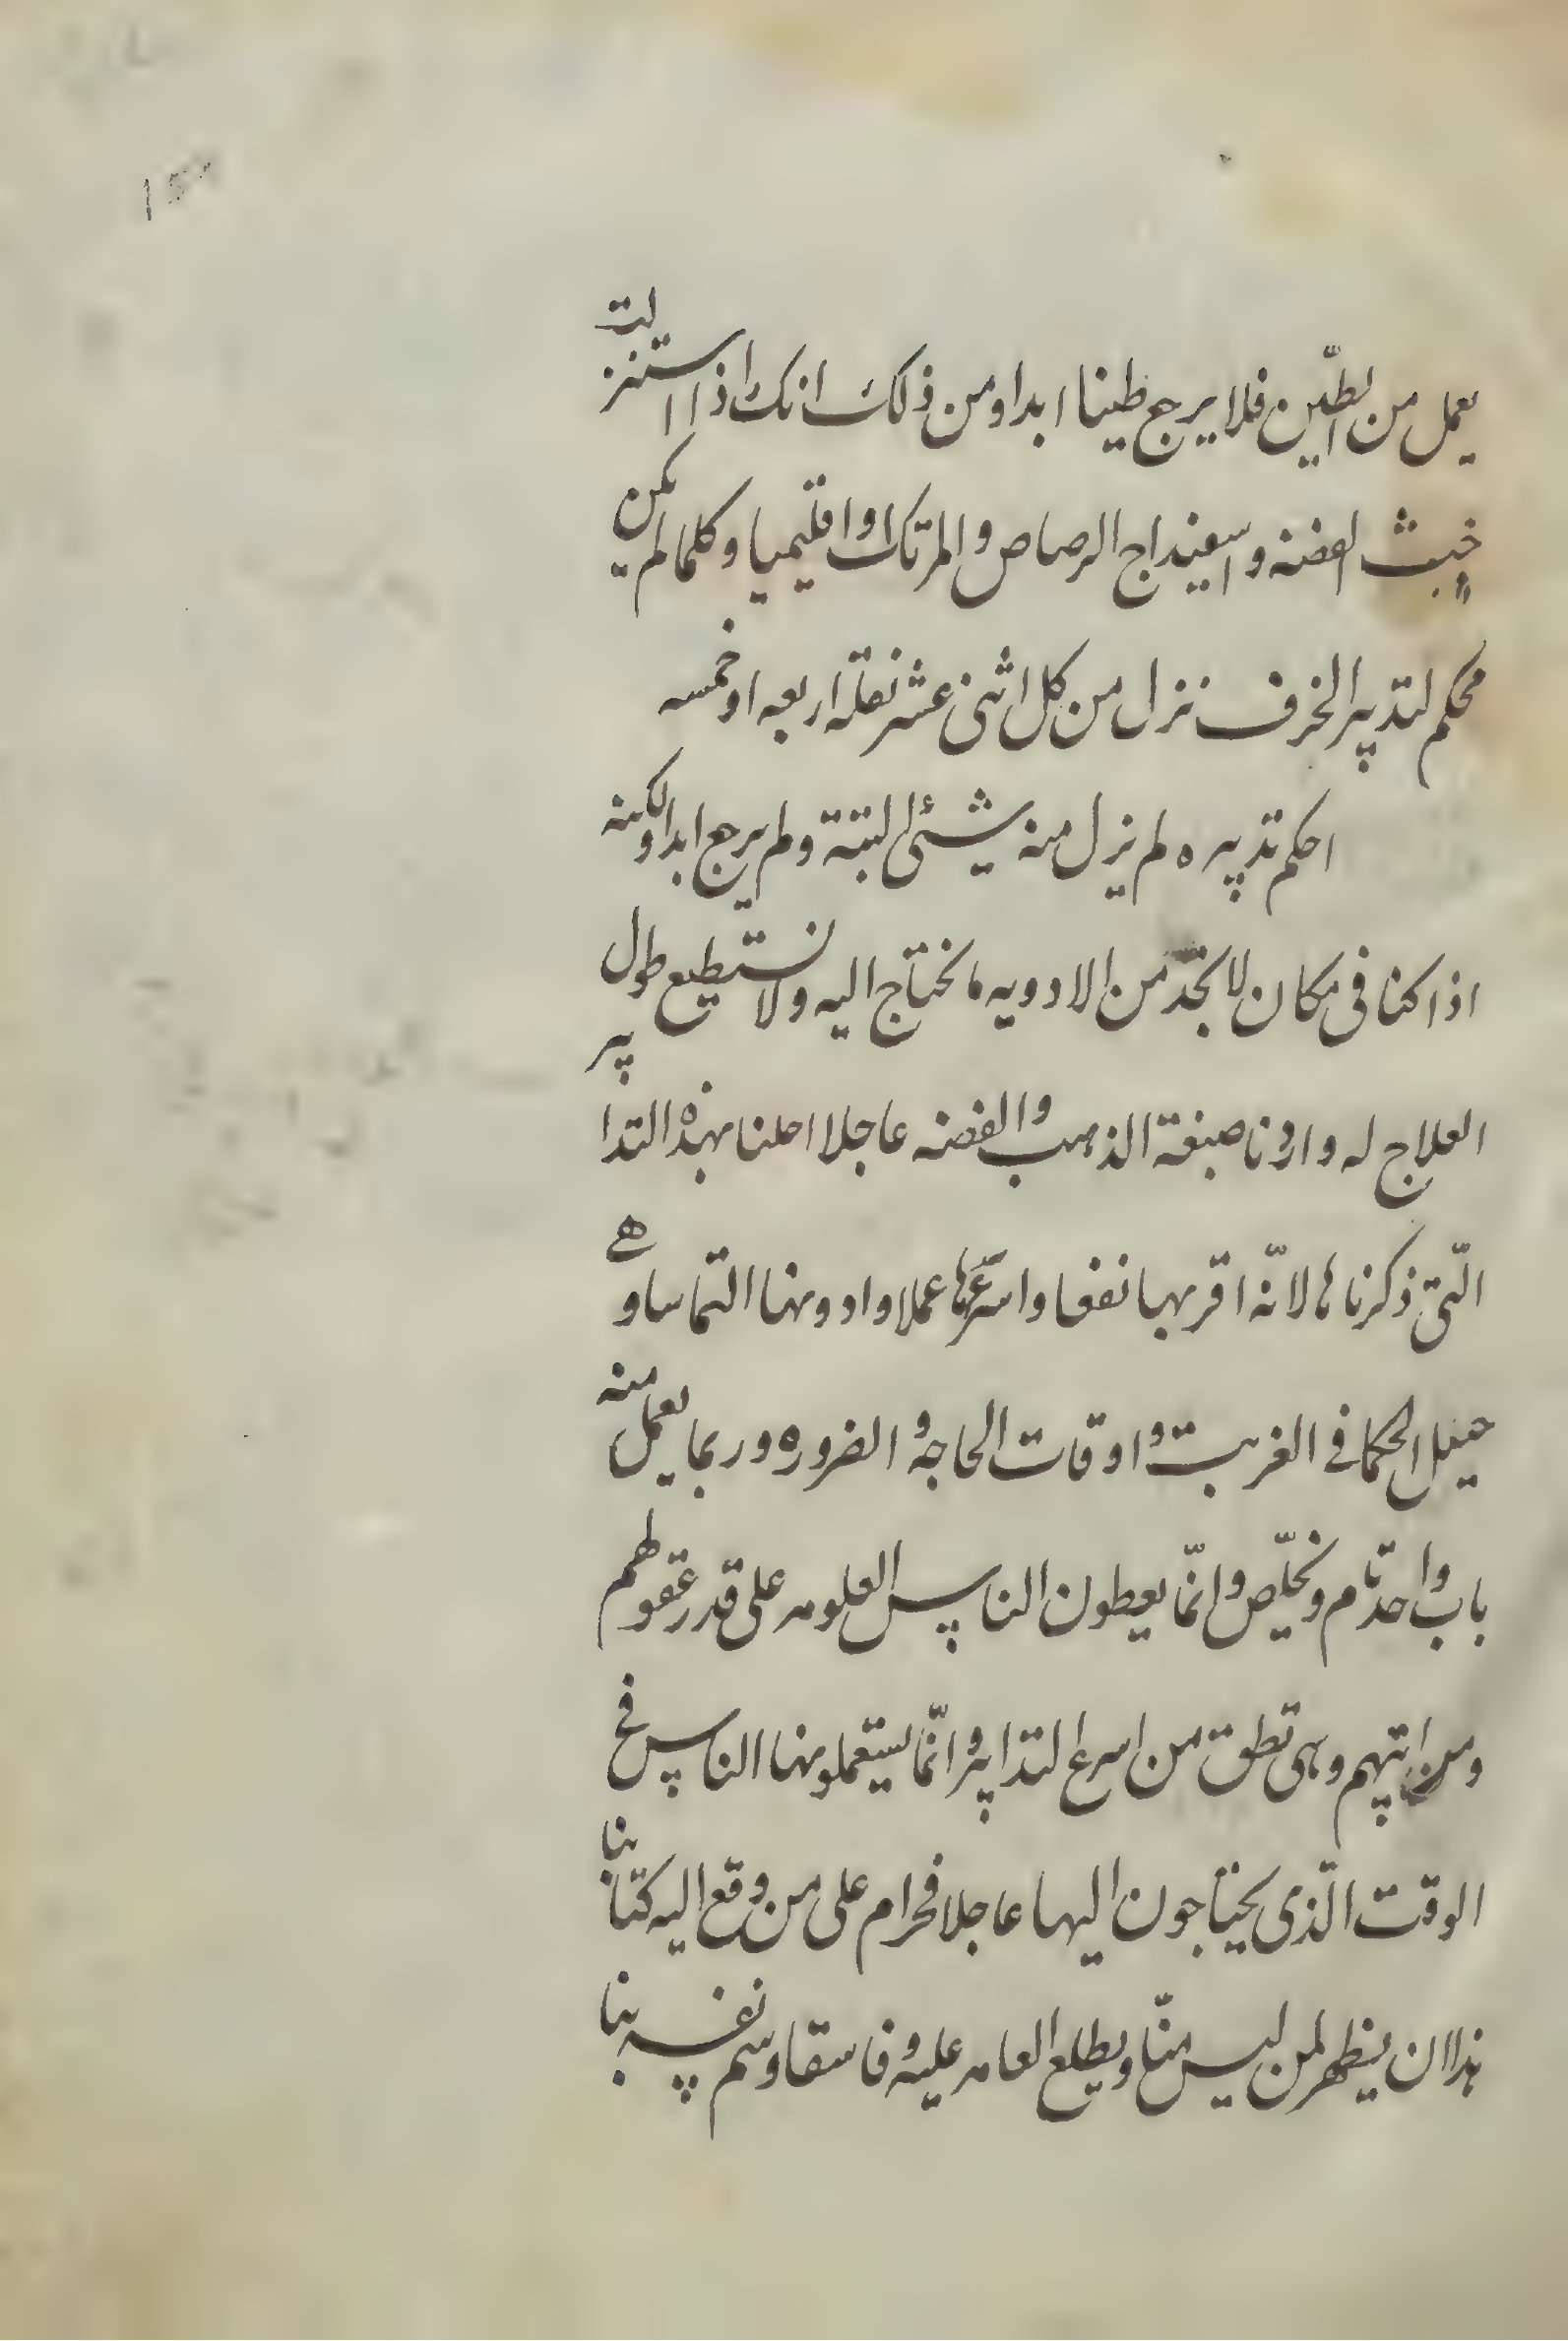 يعمل من الطّين فلا يرجع طينا ابدا ومن ذلك انك اذا استنزلت
خبث الفضه واسفيداج الرصاص والمرتك او اقليميا وكلما لم يكن
محكم لتدبير الخزف نزل من كل اثنى عشر نقلة اربعه او خمسه
احكم تدبيره لم نزل منه شيئى البتة ولم يرجع ابدا ولكنه
اذا كنا فى مكان لا نجد من الادويه ما نحتاج اليه ولا نستطيع طول
العلاج له واردنا صبغة الذهب والفضه عاجلا احلنا بهذه التدابير
الّتى ذكرناها لانّه اقربها نفعا واسرعها عملا وادومنها التماسا وهى
حيل الحكما فى الغربت واوقات الحاجه والضروره وربما يعمل منه
باب واحد تام ونخلّص وانّما يعطون الناس العلوم على قدر عقولهم
ومراتبهم وهى تطق من اسرع التدابير وانّما يستعملونها الناس فى
الوقت الّذى يحتاجون اليها عاجلا فحرام على من وقع اليه كتابنا
هذا ان يظهر لمن ليس منّا ويطلع العامه عليه وفاسقا وسم نفسه بنا